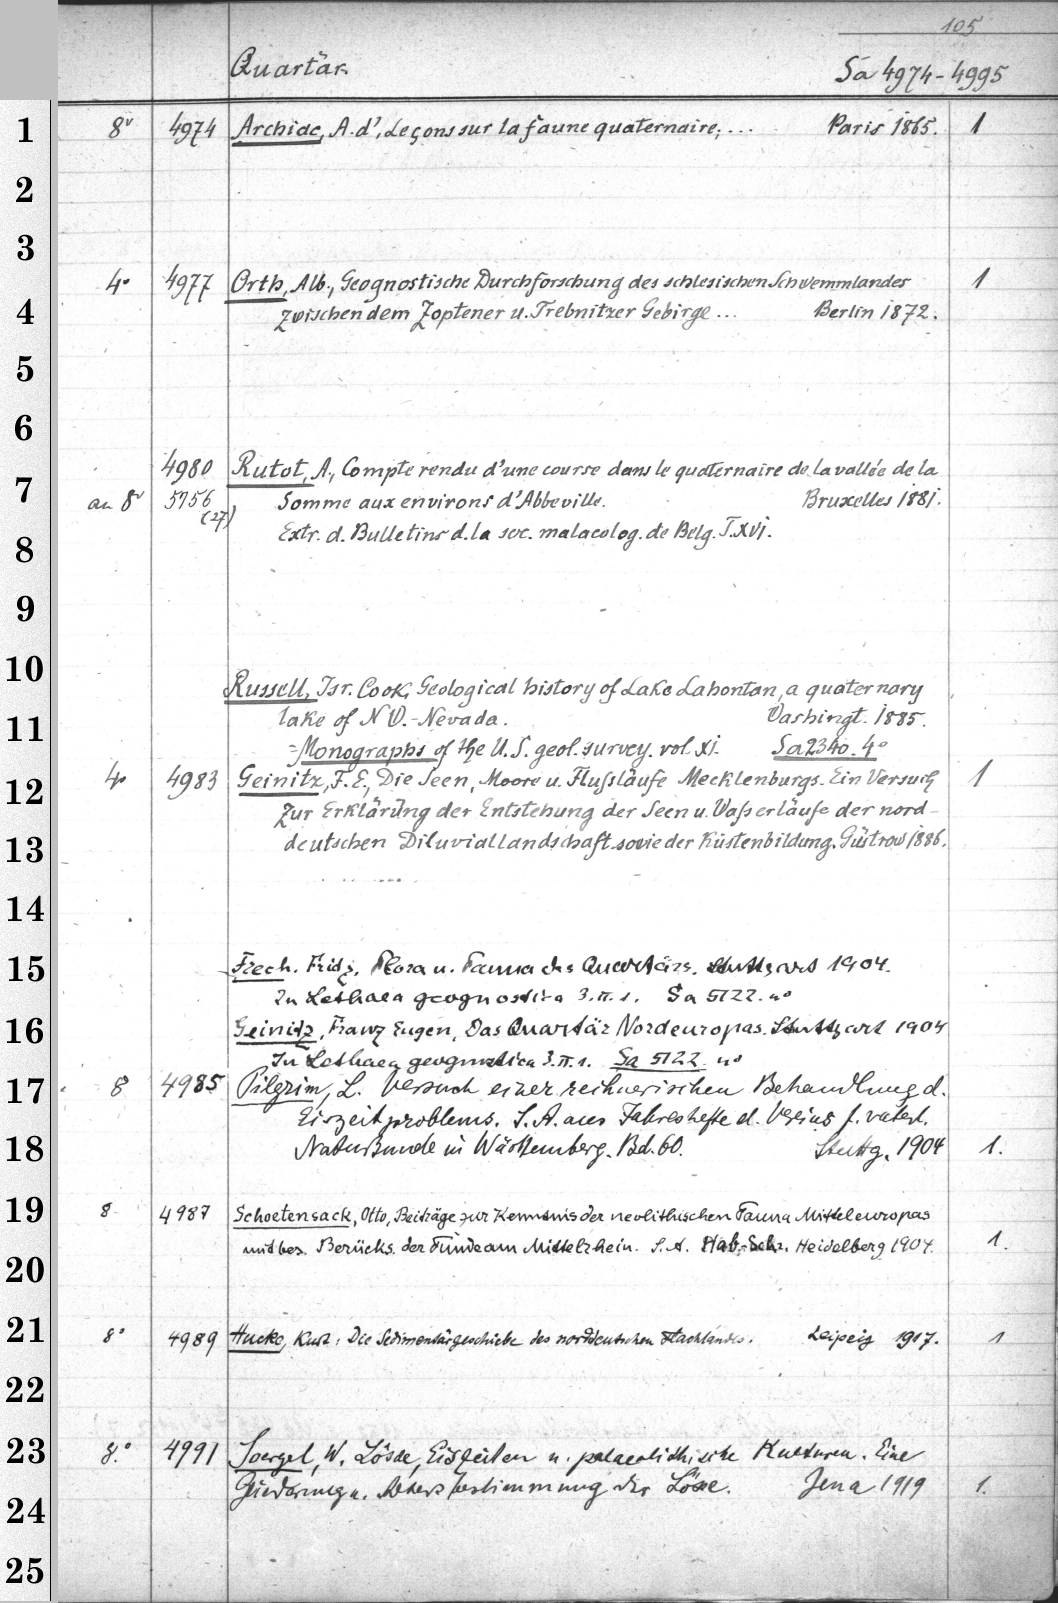 105
Quartär.
Sa 4974-4995
1 8° 4974 Archiac, A. d', Leçons sur la faune quaternaire; ... Paris 1865. 1
2
3
4° 4977 Orth, Alb., Geognostische Durchforschung des schlesischen Schwemmlandes 1
4 zwischen dem Zoptener u. Trebnitzer Gebirge ... Berlin 1872.
5
6
4980 Rutot, A., Compte rendu d'une course dans le quaternaire de la vallée de la
7 an 8° 5756 Somme aux environs d'Abbeville. Bruxelles 1881.
(27)
8 Extr. d. Bulletins d. la soc. malacolog. de Belg. T. XVI.
9
10
Russell, Isr. Cook, Geological history of Lake Lahontan, a quaternary
11 lake of N W.-Nevada. Washingt. 1885.
=Monographs of the U.S. geol. survey. vol. XI. Sa 2340. 4°
12 4° 4983 Geinitz, F. E., Die Seen, Moore u. Flußläufe Mecklenburgs. Ein Versuch 1
zur Erklärung der Entstehung der Seen u. Waßerläufe der nord-
13 deutschen Diluviallandschaft sowie der Küstenbildung. Güstrow 1886.
14
15 Frech. Fritz, Flora u. Fauna des Quartärs. Stuttgart 1904.
In Lethaea geognostica 3. II. 1. Sa 5122. 4°
16 Geinitz, Franz Eugen, Das Quartär Nordeuropas. Stuttgart 1904
In Lethaea geognostica 3. II. 1. Sa 5122 4°
17 8 4985 Pilgrim, L. Versuch einer rechnerischen Behandlung d.
Eiszeitproblems. S. A. aus Jahreshefte d. Vereins f. vaterl.
18 Naturkunde in Württemberg. Bd. 60. Stuttg. 1904 1.
19 8 4987 Schoetensack, Otto, Beiträge zur Kenntnis der neolithischen Fauna Mitteleuropas
mit bes. Berücks. der Funde am Mittelrhein. S. A. Hab.-Schr. Heidelberg 1904. 1.
20
21 8° 4989 Hucke, Kurt: Die Sedimentärgeschiebe des norddeutschen Flachlandes. Leipzig 1917. 1
22
23 8.° 4991 Soergel, W. Lösse, Eiszeiten u. palaeolithische Kulturen. Eine
Gliederung u. Altersbestimmung der Lösse. Jena 1919 1.
24
25